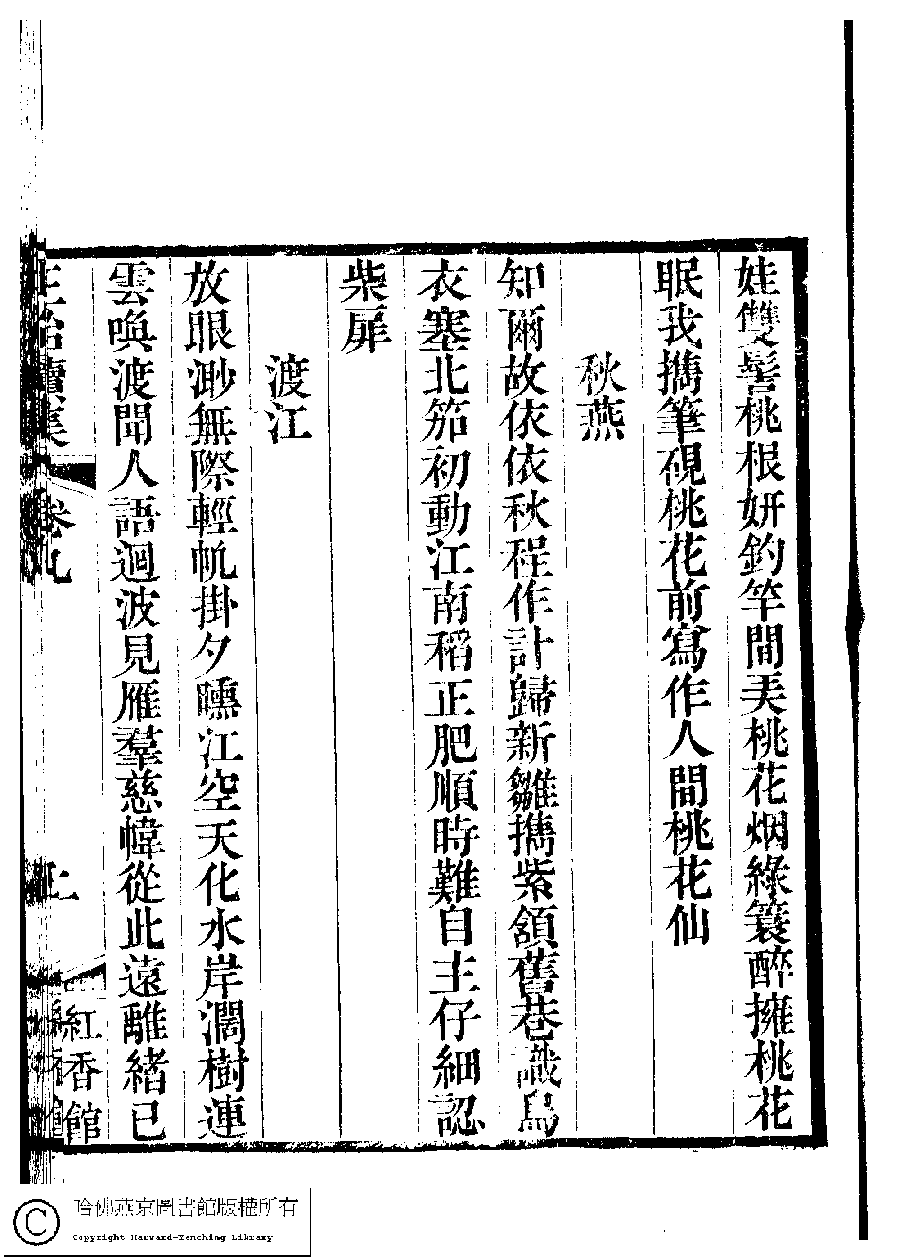 娃雙髻桃根妍釣竿間美桃花烟綠簑醉擁桃花
眠我攜筆硯桃花前寫作人間桃花仙
秋燕
知爾故依依秋程作計歸新雛攜紫頷舊巷識烏
衣塞北笳初動江南稻正肥順時難自主仔細認
柴扉
渡江
放眼渺無際輕帆掛夕曛江空天化水岸濶樹連
雲喚渡聞人語迴波見雁羣慈幃從此遠離緒已
續集 卷九
紅香館
哈佛燕京圖書館版權所有
Copyright Harvard-Yenching Library